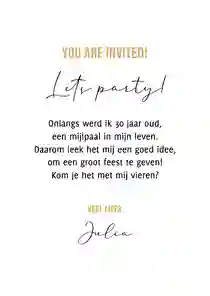 YOU ARE INVITED!
Let's party!
Onlangs werd ik 30 jaar oud,
een mijlpaal in mijn leven.
Daarom leek het mij een goed idee,
om een groot feest te geven!
Kom je het met mij vieren?
VEEL LIEFS
Julia